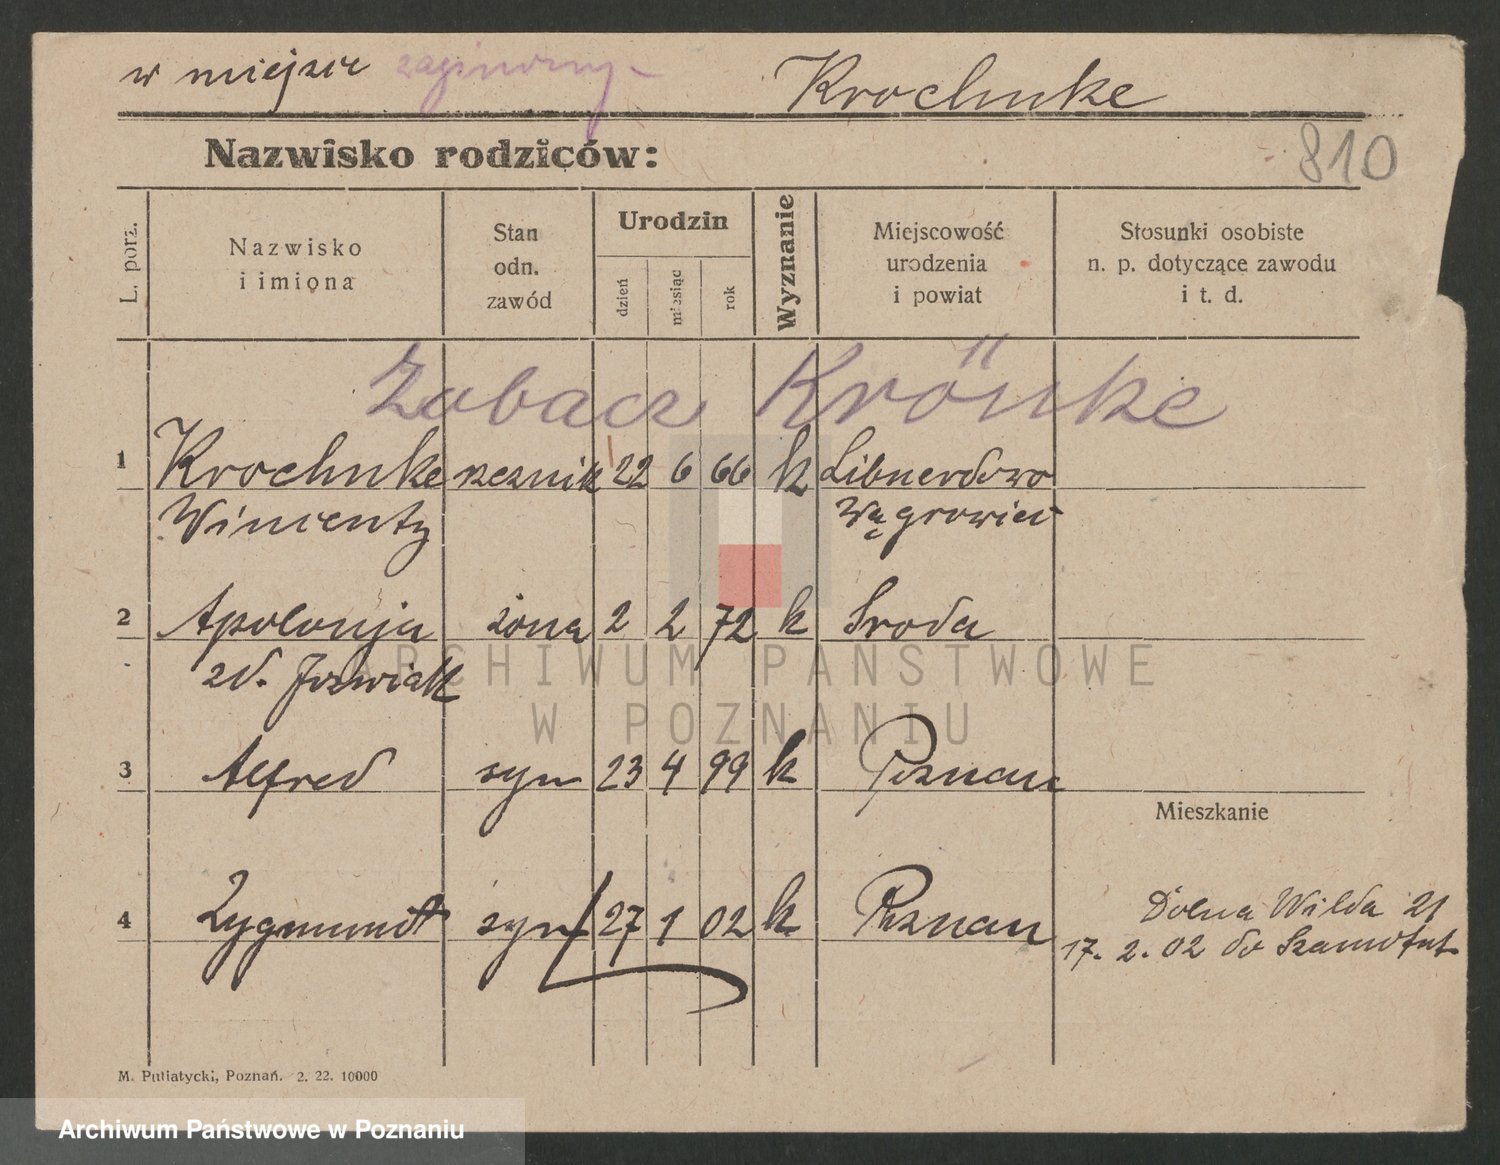 w miejsce zaginionej Krochnke
810
Nazwisko rodziców:
L. porz.
Nazwisko
i imiona
Stan
odn.
zawód
Urodzin
dzień
miesiąc
rok
Wyznanie
Miejscowość
urodzenia
i powiat
Stosunki osobiste
n. p. dotyczące zawodu
i t. d.
Zobacz Krönke
1 Krochnke rzeznik 22 6 66 k
Wincenty Wągrowiec
2 Apolonja żona 2 2 72 k Sroda
zd. Jozwiak
ARCHIWUM PAŃSTWOWE
W POZNANIU
3 Alfred syn 23 4 99 k Poznan
Mieszkanie
4 Zygmunt syn 27 1 02 k Poznan
Dolna Wilda 21
17. 2. 02 do Szamotuł
M. Putiatycki, Poznań. 2. 22. 10000
Archiwum Państwowe w Poznaniu